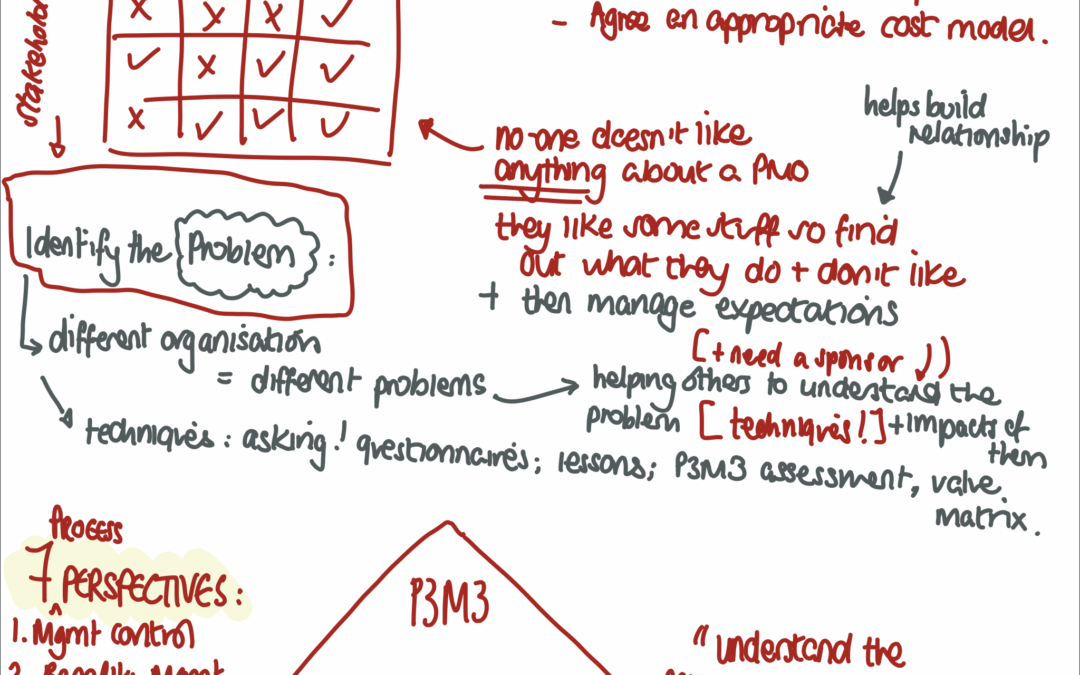 - Agree an appropriate cost model.
helps build
relationship
no-one doesn't like
anything about a PMO
they like some stuff so find
out what they do + don't like
+ then manage expectations
Identify the Problem :
different organisation
= different problems
[+ need a sponsor ])
helping others to understand the
problem [techniques!] + impacts of
them
techniques : asking! questionnaires; lessons; P3M3 assessment, value
matrix.
Process
7 PERSPECTIVES:
1. Mgmt control
2. Benefits Mgmt
P3M3
" understand the